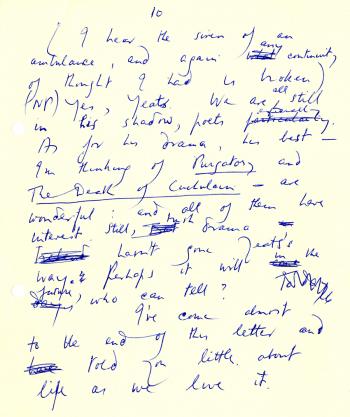 10
( I hear the siren of an
ambulance, and again any continuity
of thought I had is broken)
(NP) Yes, Yeats. We are all still
in his shadow, poets especially.
As for his drama, his best –
I'm thinking of Purgatory and
The Death of Cuchulain – are
wonderful : and all of them have
interest still, Irish drama
hasn't gone Yeats's
way. Perhaps it will in the
future, who can tell?
I've come almost
to the end of this letter and
told you little about
life as we live it.